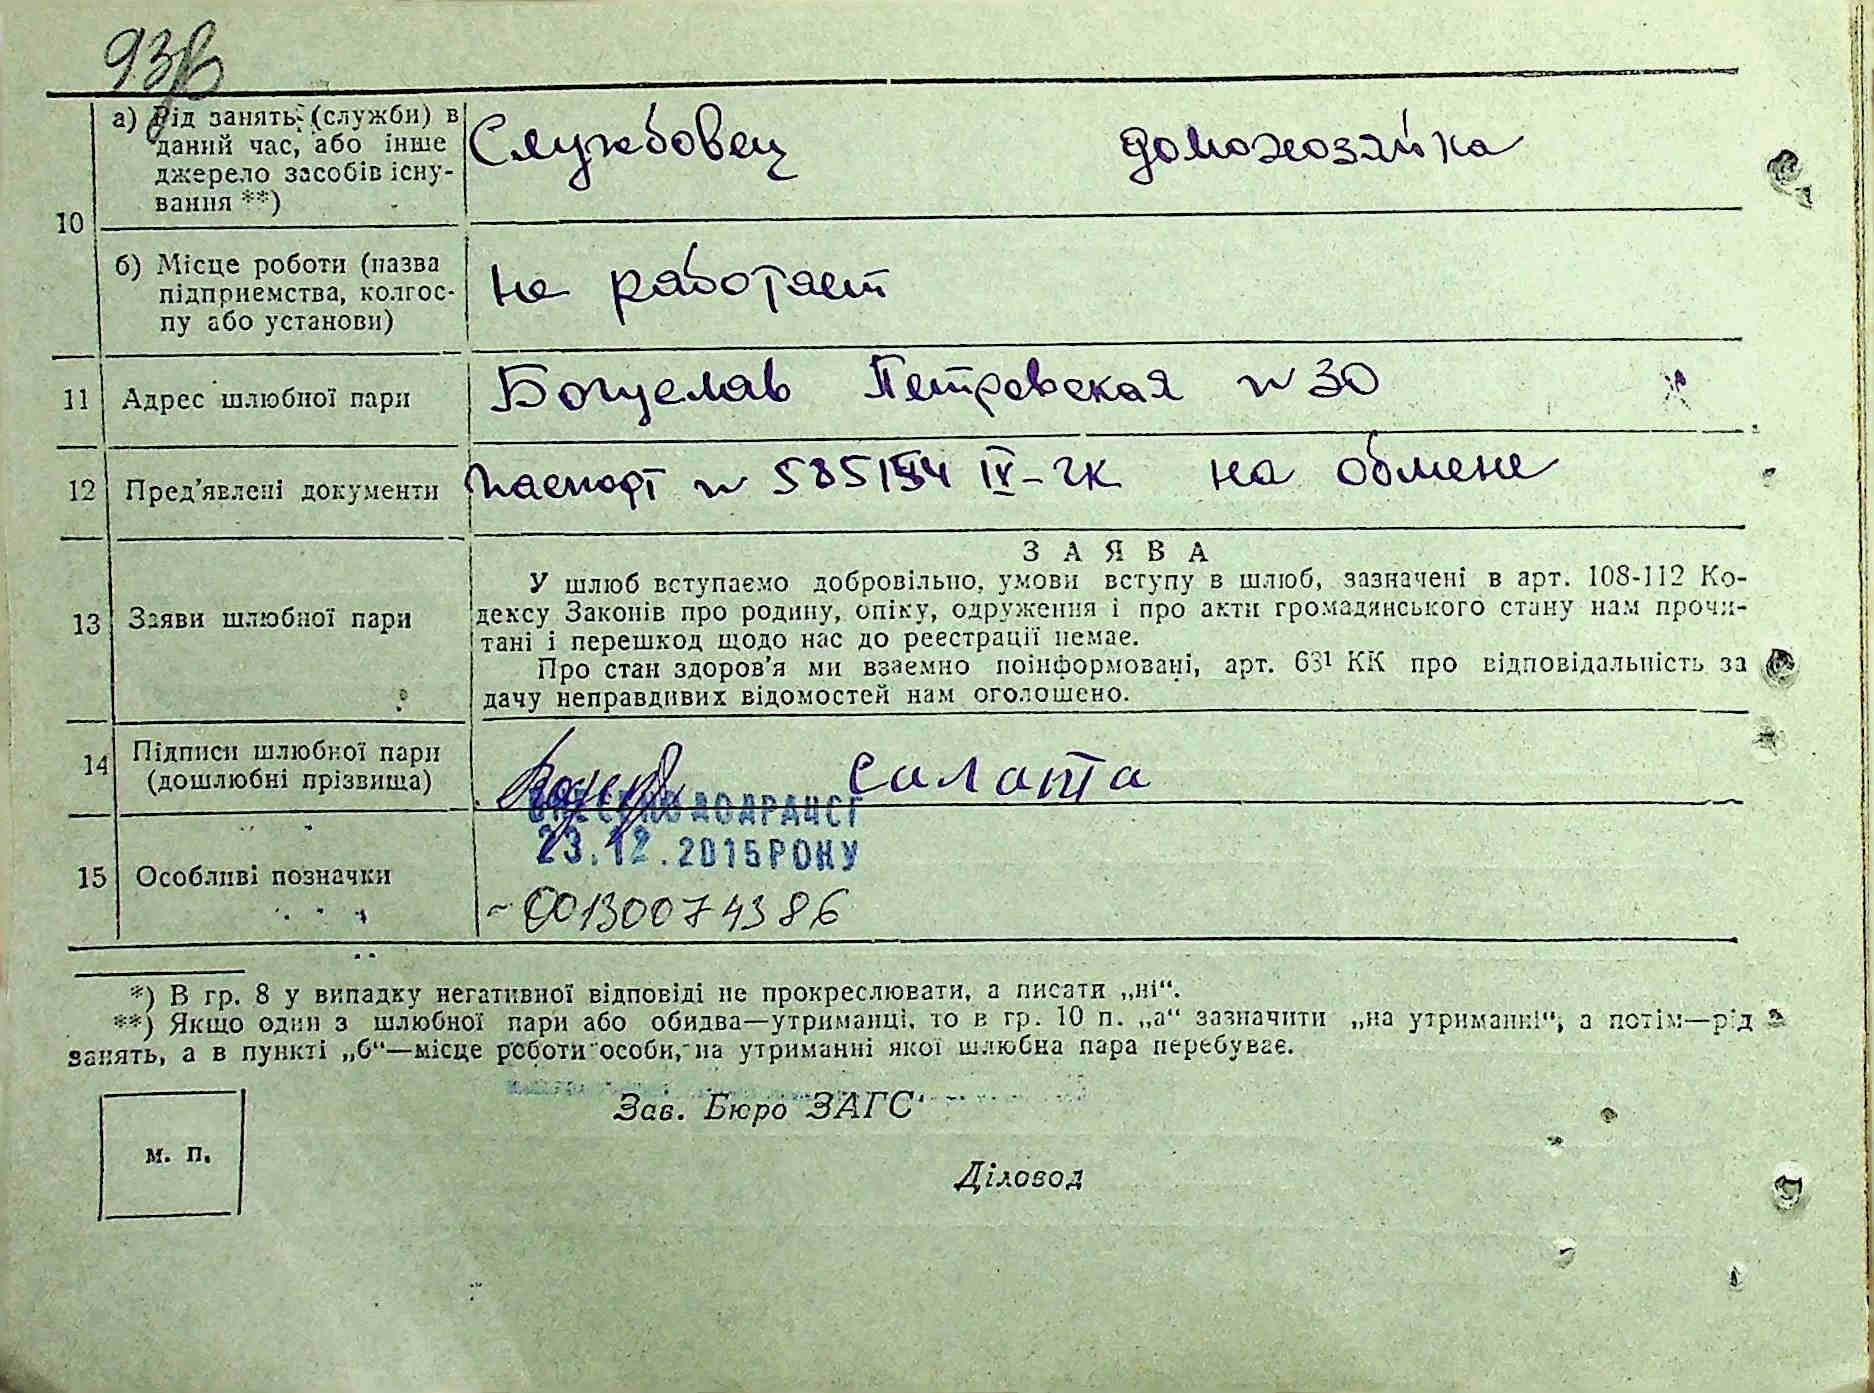 93
а) Рід занять (служби) в
даний час, або інше
джерело засобів існу-
вання **)
Службовец домохозяйка
10
б) Місце роботи (назва
підприємства, колгос-
пу або установи)
не работает
11 Адрес шлюбної пари Богуслав Петровская N 30
12 Пред'явлені документи Паспорт N IV-ЧК на обмене
13 Заяви шлюбної пари
З А Я В А
У шлюб вступаємо добровільно, умови вступу в шлюб, зазначені в арт. 108-112 Ко-
дексу Законів про родину, опіку, одруження і про акти громадянського стану нам прочи-
тані і перешкод щодо нас до реєстрації немає.
Про стан здоров'я ми взаємно поінформовані, арт. 63¹ КК про відповідальність за
дачу неправдивих відомостей нам оголошено.
14 Підписи шлюбної пари
(дошлюбні прізвища)
Салата
ВНЕСЕНО ДО ДРАЦСГ
23.12.2015 РОКУ
15 Особливі позначки
00130074386
*) В гр. 8 у випадку негативної відповіді не прокреслювати, а писати „ні“.
**) Якщо один з шлюбної пари або обидва—утриманці, то в гр. 10 п. „а“ зазначити „на утриманні“, а потім—рід
занять, а в пункті „б“—місце роботи особи, на утриманні якої шлюбна пара перебуває.
Зав. Бюро ЗАГС
м. п.
Діловод